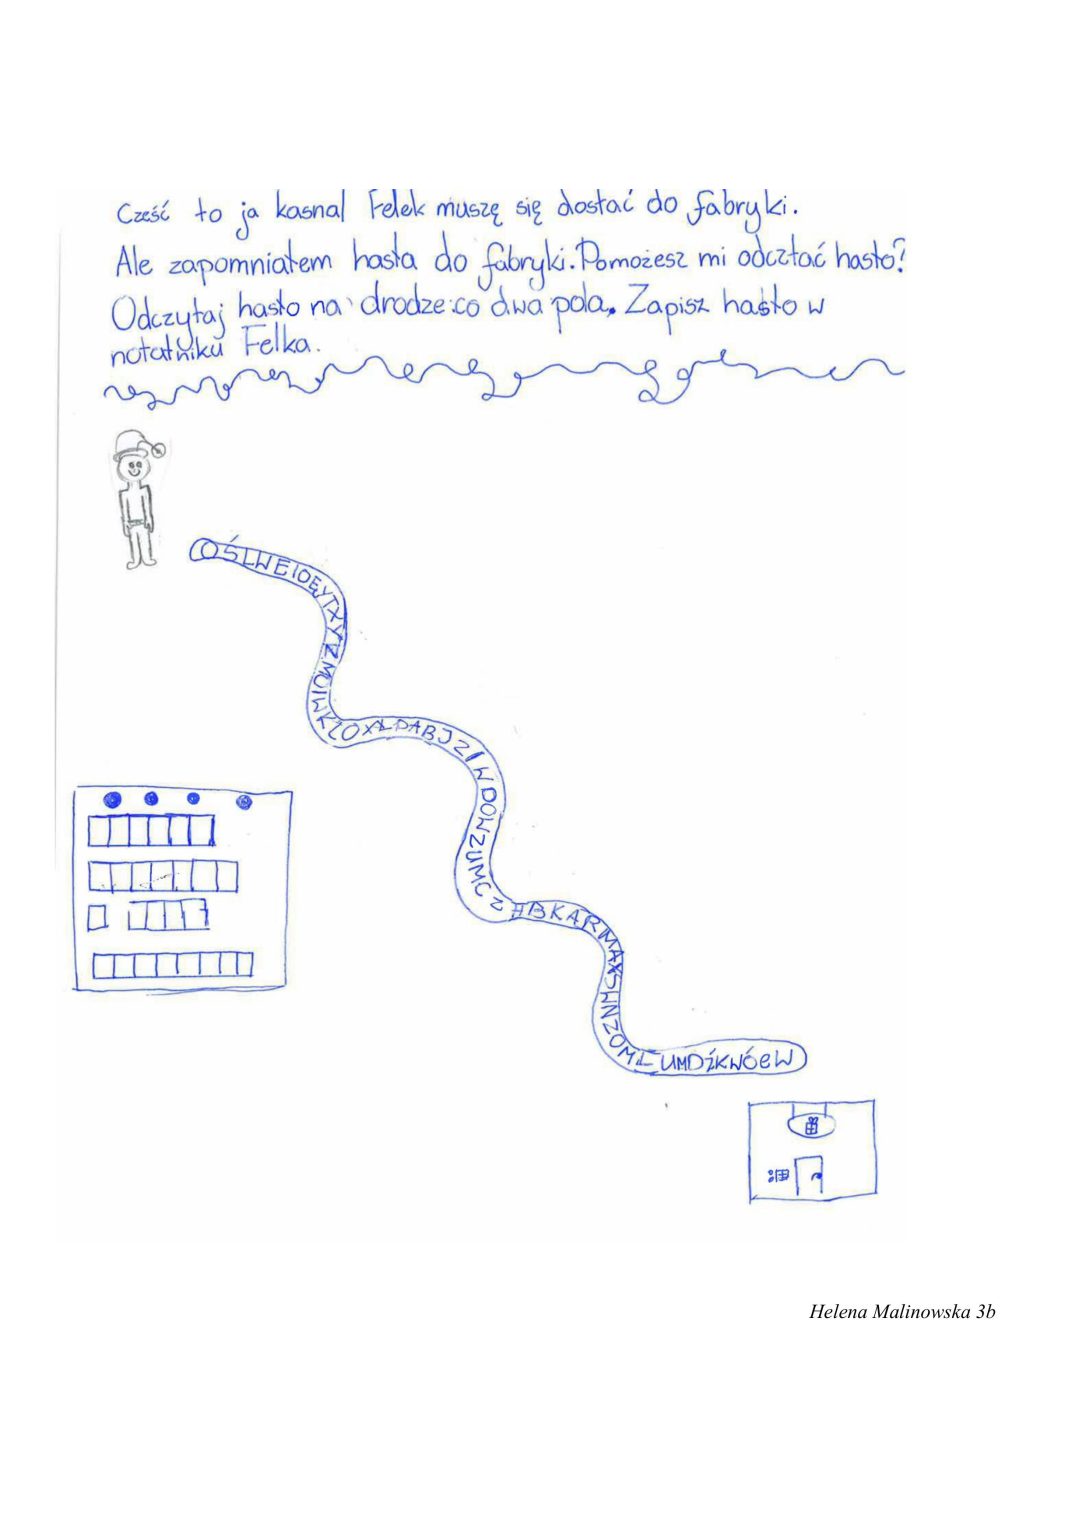 Cześć to ja kasnal Felek muszę się dostać do fabryki.
Ale zapomniałem hasła do fabryki. Pomożesz mi odcztać hasło?
Odczytaj hasło na drodze co dwa pola. Zapisz hasło w
notatniku Felka.
OŚLWEIDĘYTXYZMOIWKZOXŁPABJZIWDOWZUMCZ
#BKARMAXSWNZOMŁUMDŹKWÓEW
Helena Malinowska 3b